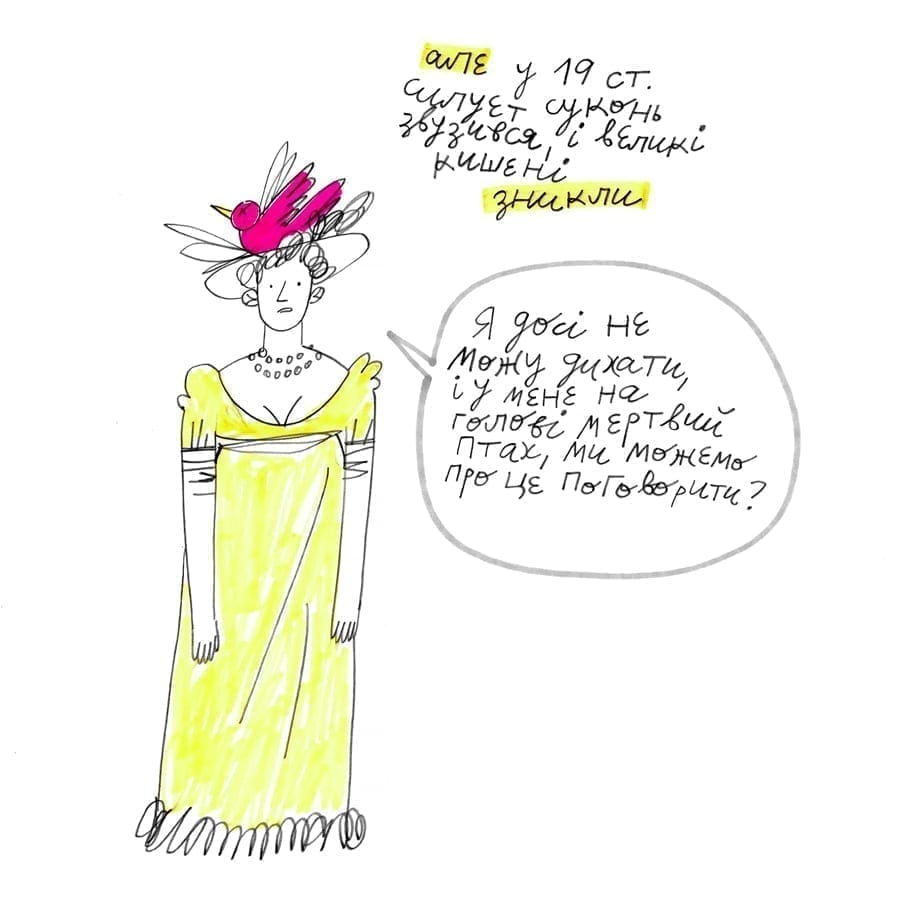 але у 19 ст.
силует суконь
звузився, і великі
кишені
зникли
Я досі не
можу дихати,
і у мене на
голові мертвий
птах, ми можемо
про це поговорити?